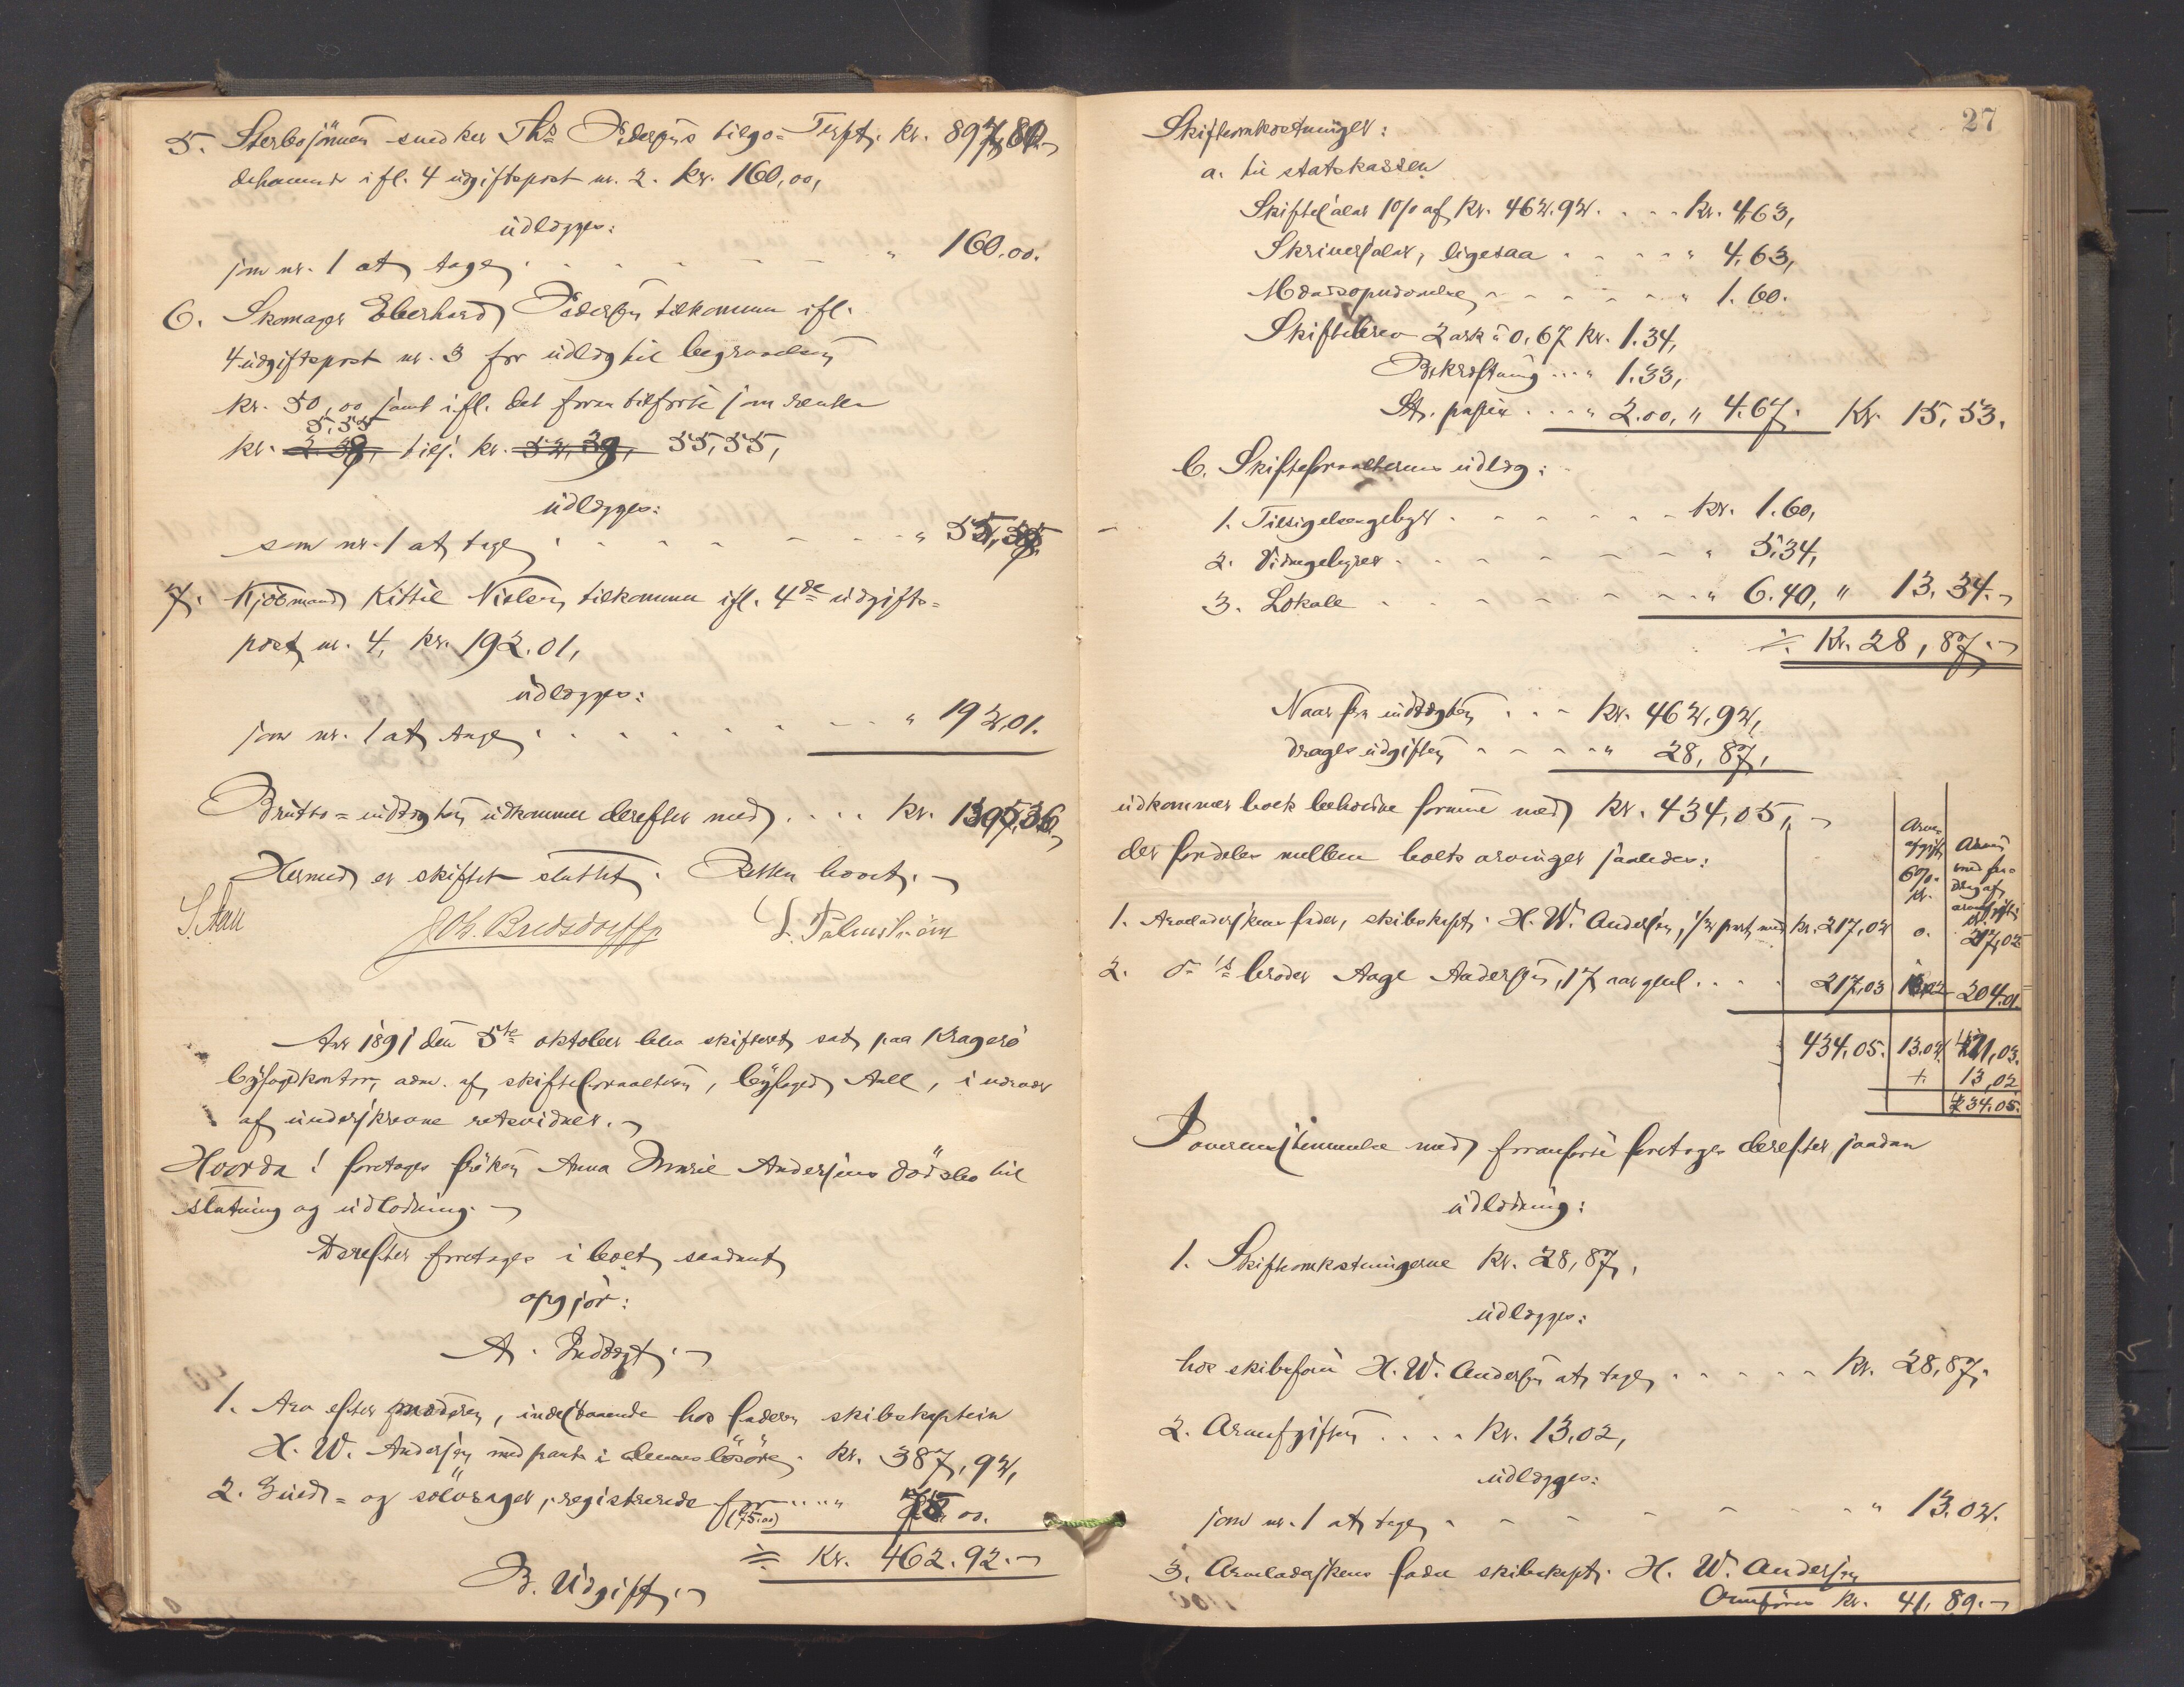 5. Sterbosönnen snedker Ths Pedersens tilgo= Tpst. kr. 897,80
dekommer ifl. 4 udgiftspost nr. 2. kr. 160,00,
udlægges:
som nr. 1 at tage . . . . . " 160.00.
6. Skomager Eberhard Pedersen tilkommer ifl.
4 udgiftspost nr. 3 for udlæg til begravelsen
kr. 50,00 samt ifl. det foran tilförte som renter
5,55
kr. 2.39, tils. kr. 52,39, 55,55,
udlægges:
som nr. 1 at tage . . . . . " 55,55.
7. Kjöbmand Kittil Nielsen tilkommer ifl. 4de udgifts=
post nr. 4, kr. 192.01,
udlægges:
som nr. 1 at tage . . . . . " 192,01.
Brutto=indtægten udkommer derefter med . . . . kr. 1305,36
Hermed er skiftet sluttet. Retten hævet.
S. Aall Joh. Bredsdorff L. Palmström
Aar 1891 den 5te oktober blev skifteret sat paa Kragerö
byfogdkontor, adm. af skifteforvalteren, byfoged Aall, i nærvær
af underskrevne retsvidner.
Hvorda! foretages fröken Anna Marie Andersens dödsbo til
slutning og udlodning.
Derefter foretages i boet saadant
opgjör:
A. Indtægt.
1. Arv efter moderen, indestaaende hos faderen skibskaptein
H. W. Andersen med pant i dennes lösöre. kr. 387,92,
2. Guld= og sölvsager, registrerede for . . . . " 75 00.
(75,00)
÷ Kr. 462.92.
B. Udgift.
27
Skifteomkostninger:
a. til statskassen
Skiftesalær 1% af kr. 462.92. . . . kr. 4,63,
Skriversalær, ligesaa . . . . " 4.63,
Massopnævnelse . . . . . " 1.60.
Skiftebrev 2 ark à 0,67 kr. 1.34,
Bekræftning . . . " 1.33,
St. papir . . . " 2.00, " 4.67. Kr. 15,53.
b. Skifteforvalterens udlæg:
1. Tilsigelsesgebyr . . . . . kr. 1.60,
2. Vidnegebyrer . . . . . " 5,34,
3. Lokale . . . . . " 6.40, " 13.34.
÷ Kr. 28,87.
Naar fra indtægten . . . kr. 462,92,
drages udgiften . . . . " 28,87,
udkommer boets beholdne formue med kr. 434,05,
der fordeles mellem boets arvinger saaledes:
Arve-
afgift
6%.
kr.
Arven
med fra-
drag af
arveafgift
kr.
1. Arveladerskens fader, skibskapt. H. W. Andersen, 1/2 part med kr. 217,02 0. 217,02
2. ds broder Aage Andersen, 17 aar gml. . . . 217,03 13,02 204,01.
434,05. 13.02 421,03.
+ 13,02
434.05.
I overensstemmelse med foranförte foretages derefter saadan
udlodning:
1. Skifteomkostningerne kr. 28,87,
udlægges:
hos skibsförer H. W. Andersen at tage . . . . . Kr. 28,87.
2. Arveafgiften . . . . kr. 13.02,
udlægges:
som nr. 1 at tage . . . . . " 13.02.
3. Arveladerskens fader skibskapt. H. W. Andersen
Overföres kr. 41,89.